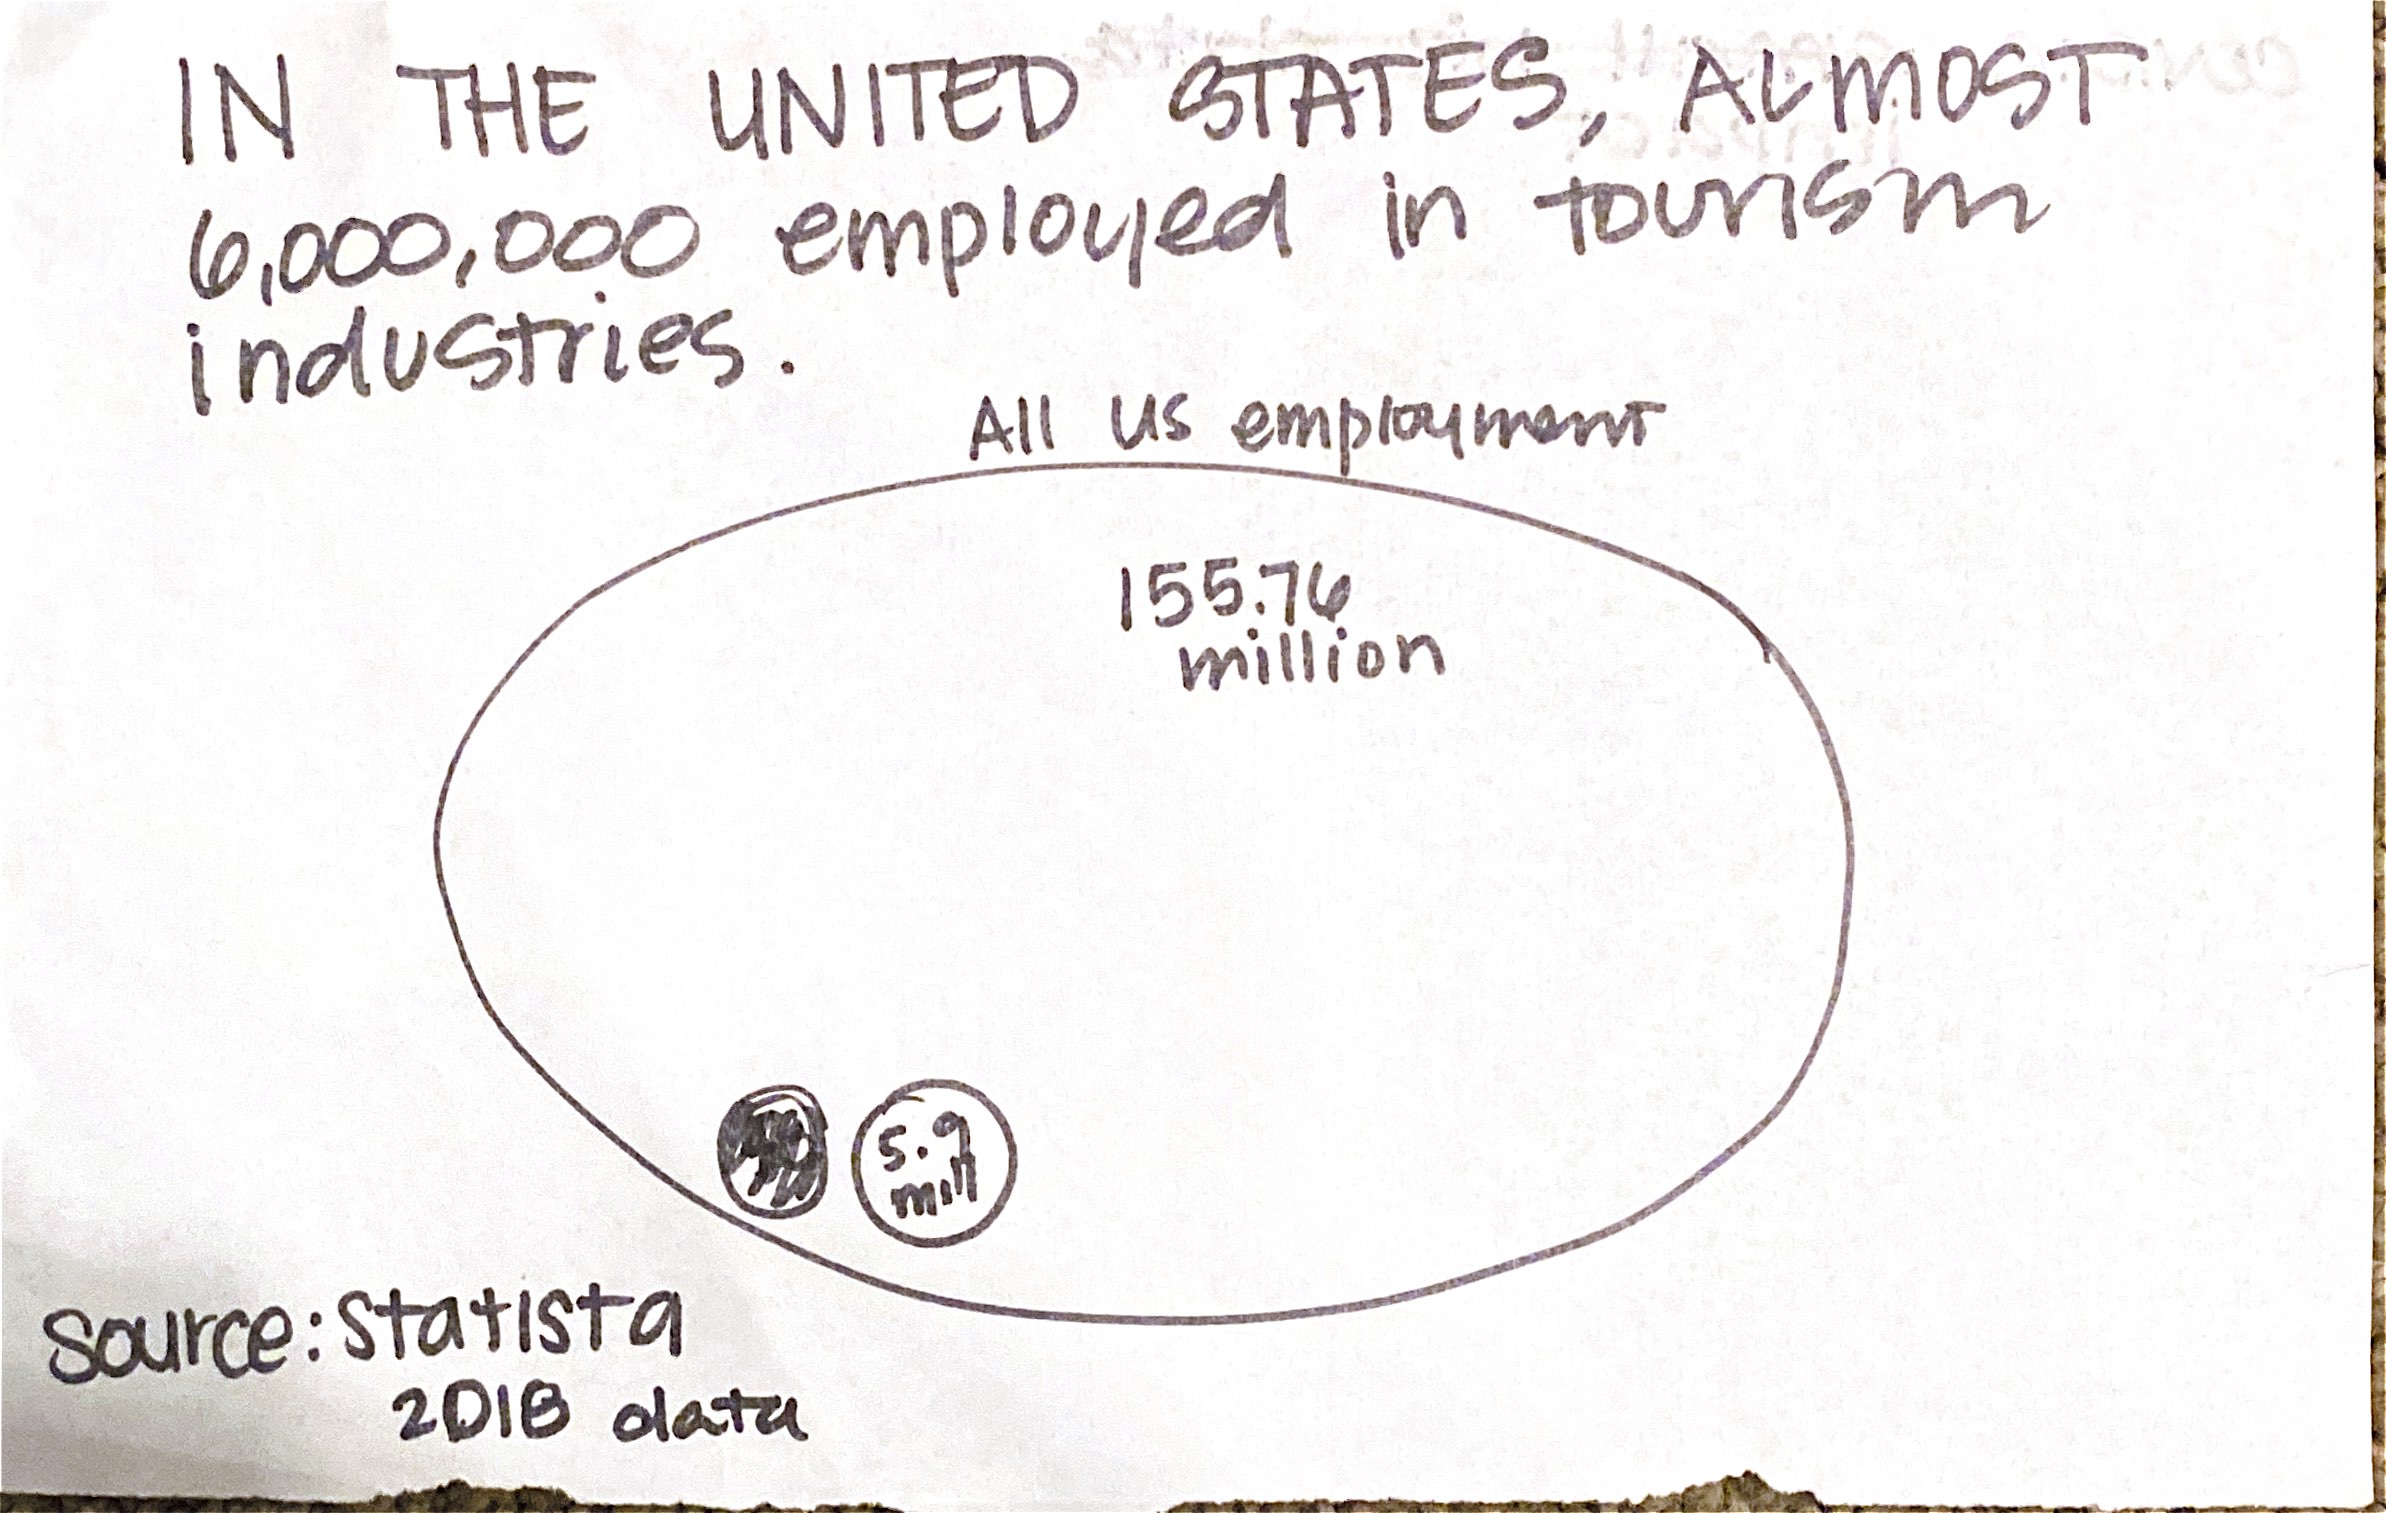 IN THE UNITED STATES, ALMOST
6,000,000 employed in tourism
industries.
All US employment
155.76
million
5.9
mill
Source: Statista
2018 data